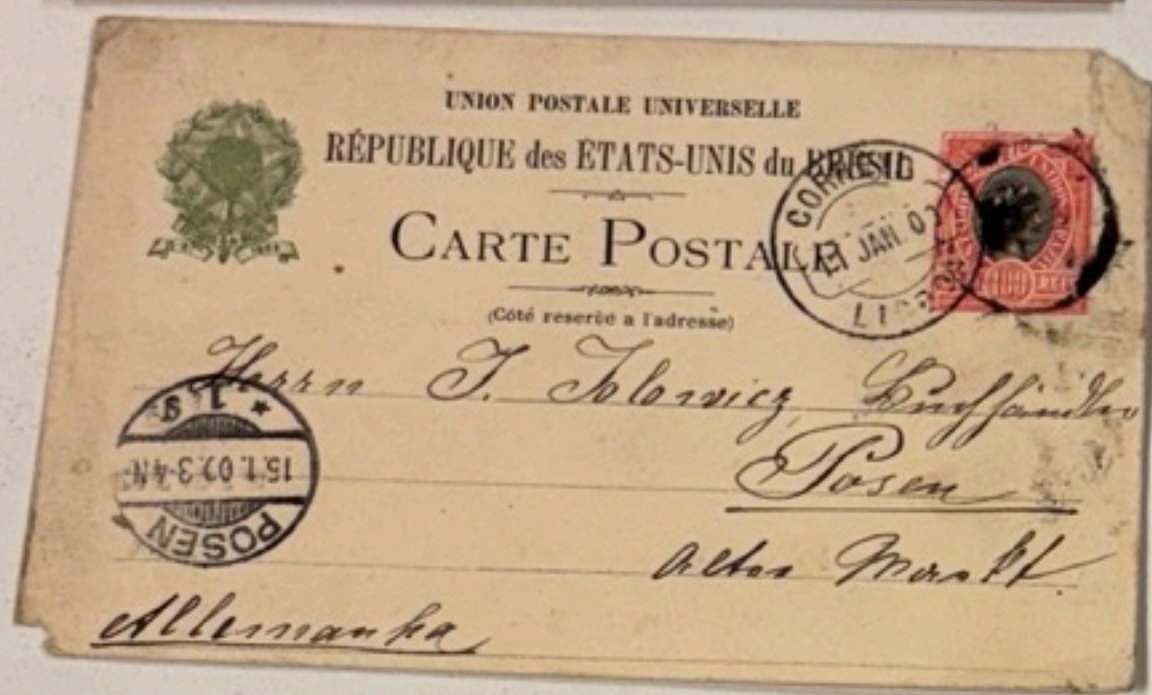 UNION POSTALE UNIVERSELLE
RÉPUBLIQUE des ÉTATS-UNIS du BRÉSIL
CARTE POSTALE
(Côté reservè a l'adresse)
CORREIO
JAN. 0
LISBOA
100 REIS
Herrn J. Jolowicz, Buchhändler
Posen
Alter Markt
Allemanha
* 1 g
15.1.00.3-4N.
POSEN